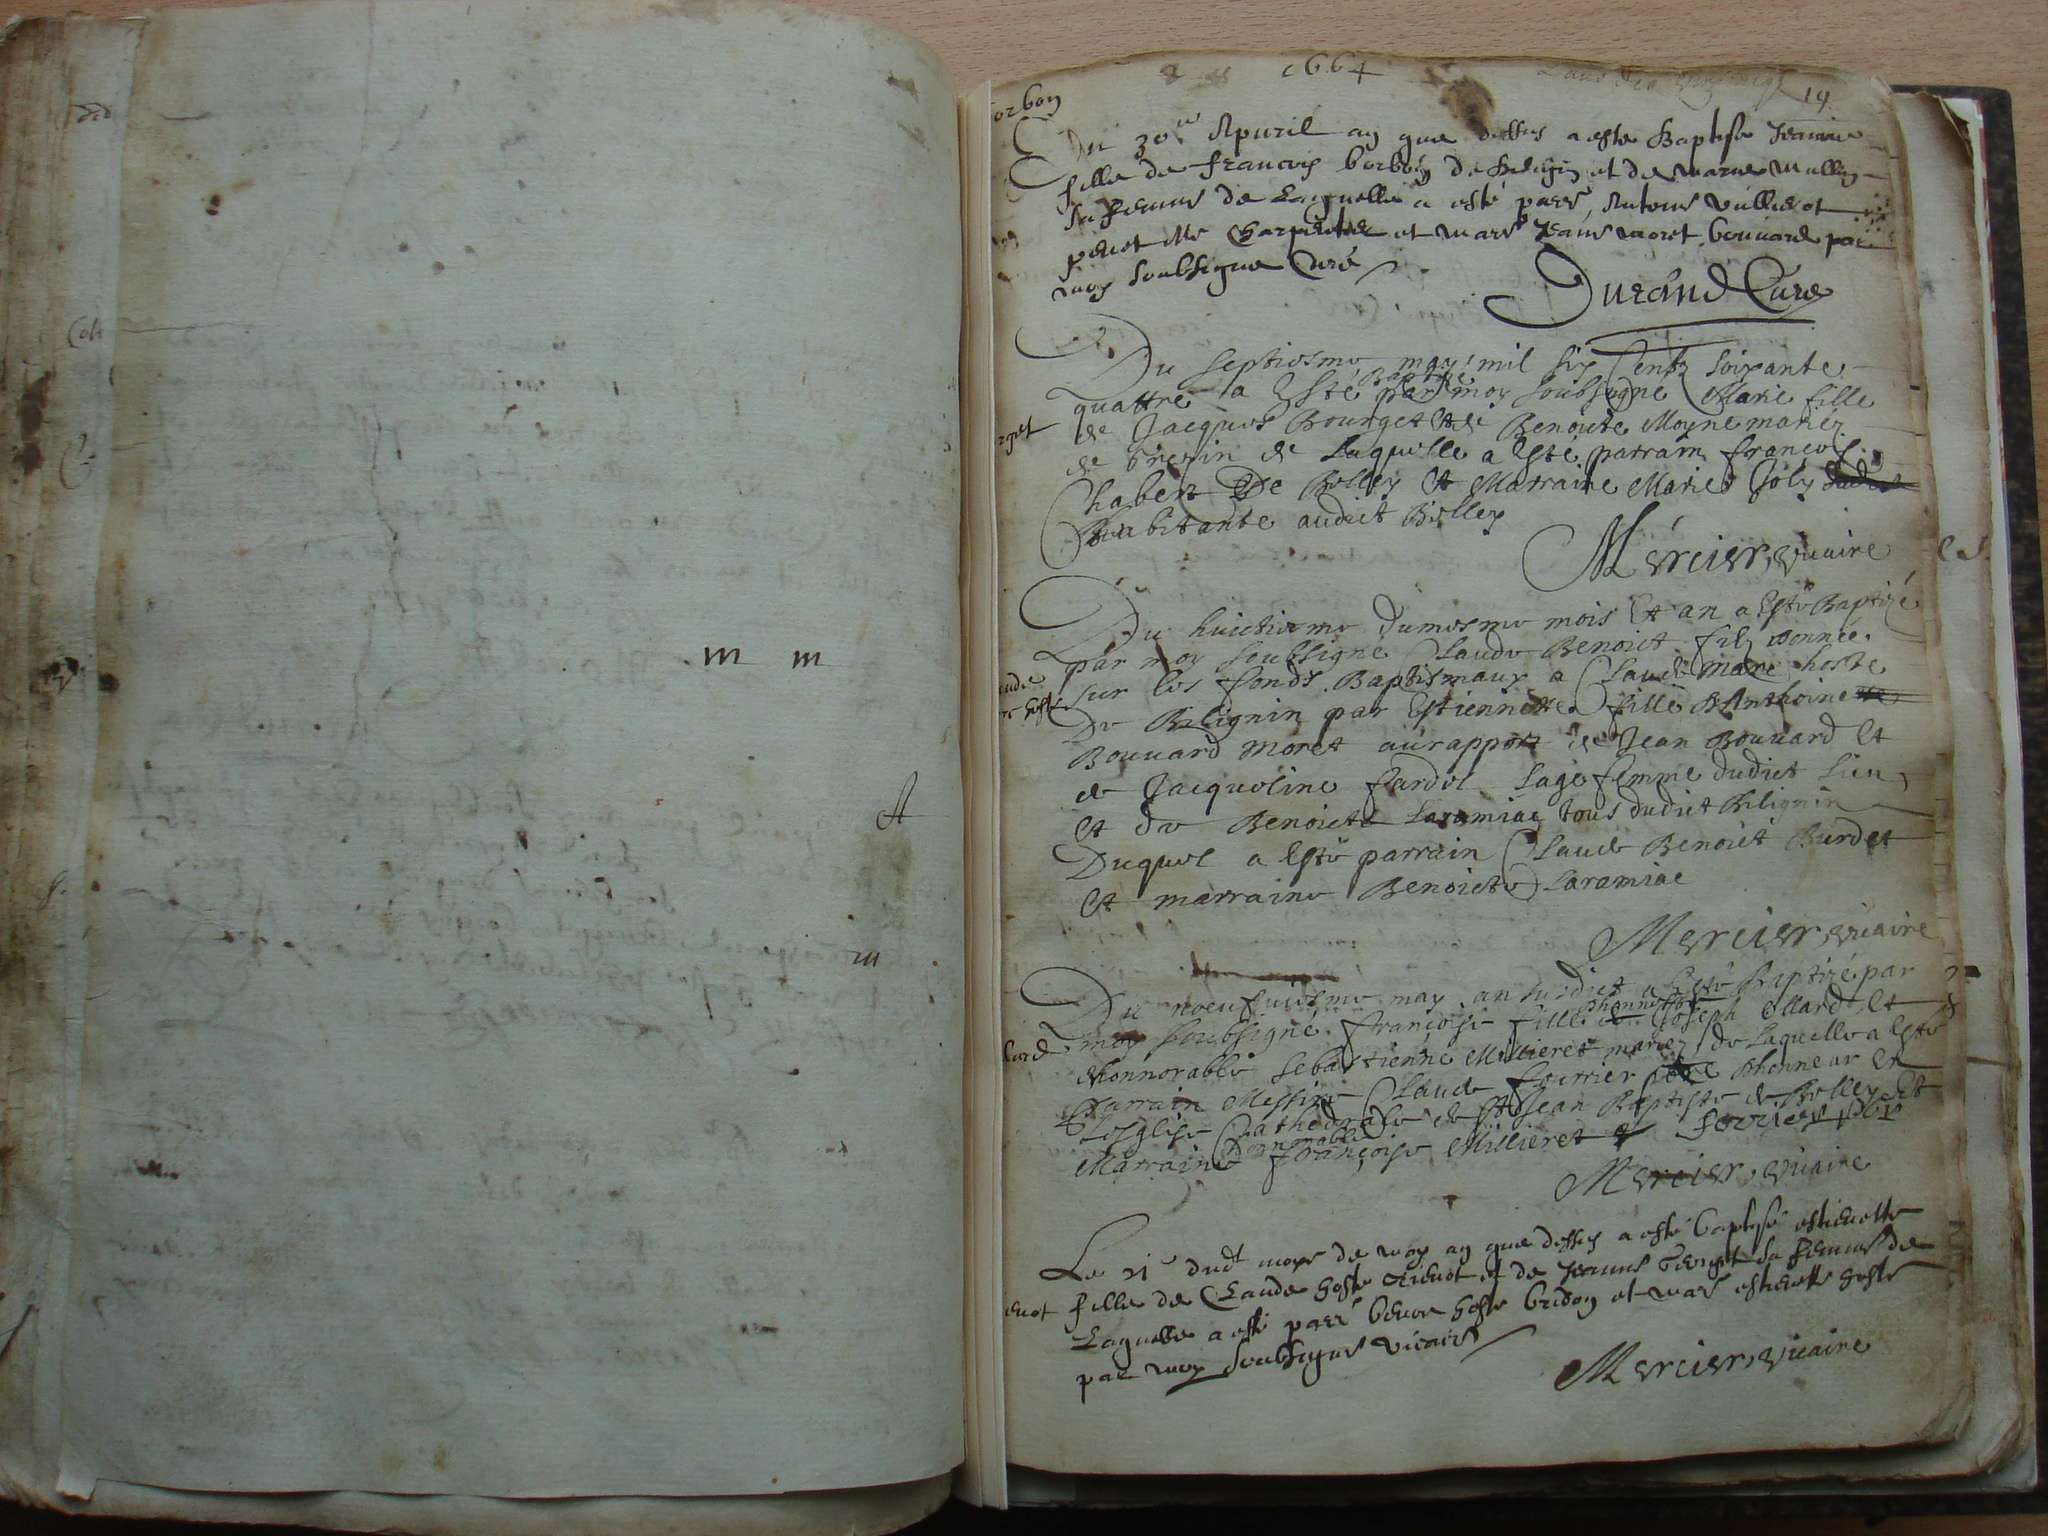 m m
A
m
1664
19
orbon
Du 30e Apuril an que dessus a este Baptise Jeanne
fille de francois borbon de bilignin et de marie mullin
sa femme de Laquelle a esté parr Antoine vullierot
et marr Jeanne moret bouuard par
moy soubsigne Curé
Durand Cure
Du septiesme may mil six Centz soixante
quattre a Esté Baptizé par moy soubsigné Marie fille
rget
de Jacques Bourget et de Benoite Moyne mariez
de bregnin de Laquelle a Esté parrain francois
Chabert De Belley Et Marraine Marie Joly
habitante audict Belley
Mercier, vicaire
Du huictiesme du mesme mois Et an a Esté Baptizé
par moy soubsigné Claude Benoict filz donnée
sur les fonds Baptismaux a Claude Mare hoste
De Bilignin par Estiennette fille d'Anthoine
Bouuard moret au rapport de Jean Bouuard Et
de Jacqueline fardel sage femme dudict Lieu
Et de Benoicte Laramiac tous dudict Bilignin
Duquel a Esté parrain Claude Benoict Burdet
Et marraine Benoicte Laramiac
Mercier, vicaire
Du noeufuiesme may an susdict a Esté Baptizé par
moy soubsigné françoise fille d'honneste Joseph Ollard Et
lard
d'honnorable Sebastienne Millieret mariez, de Laquelle a Esté
Parrain Messire Claude fourrier d'honneur En
L'esglise Cathedrale de St Jean Baptiste de Belley Et
Marraine honnorable françoise Millieret
Mercier, vicaire
Le 21e dudt moys de may an que dessus a esté baptisé estienette
enot
fille de Claude hoste et de Jeanne berget sa femme de
Laquelle a esté parr hoste bridon et marr estienette hoste
par moy soubsigné vicaire
Mercier, vicaire